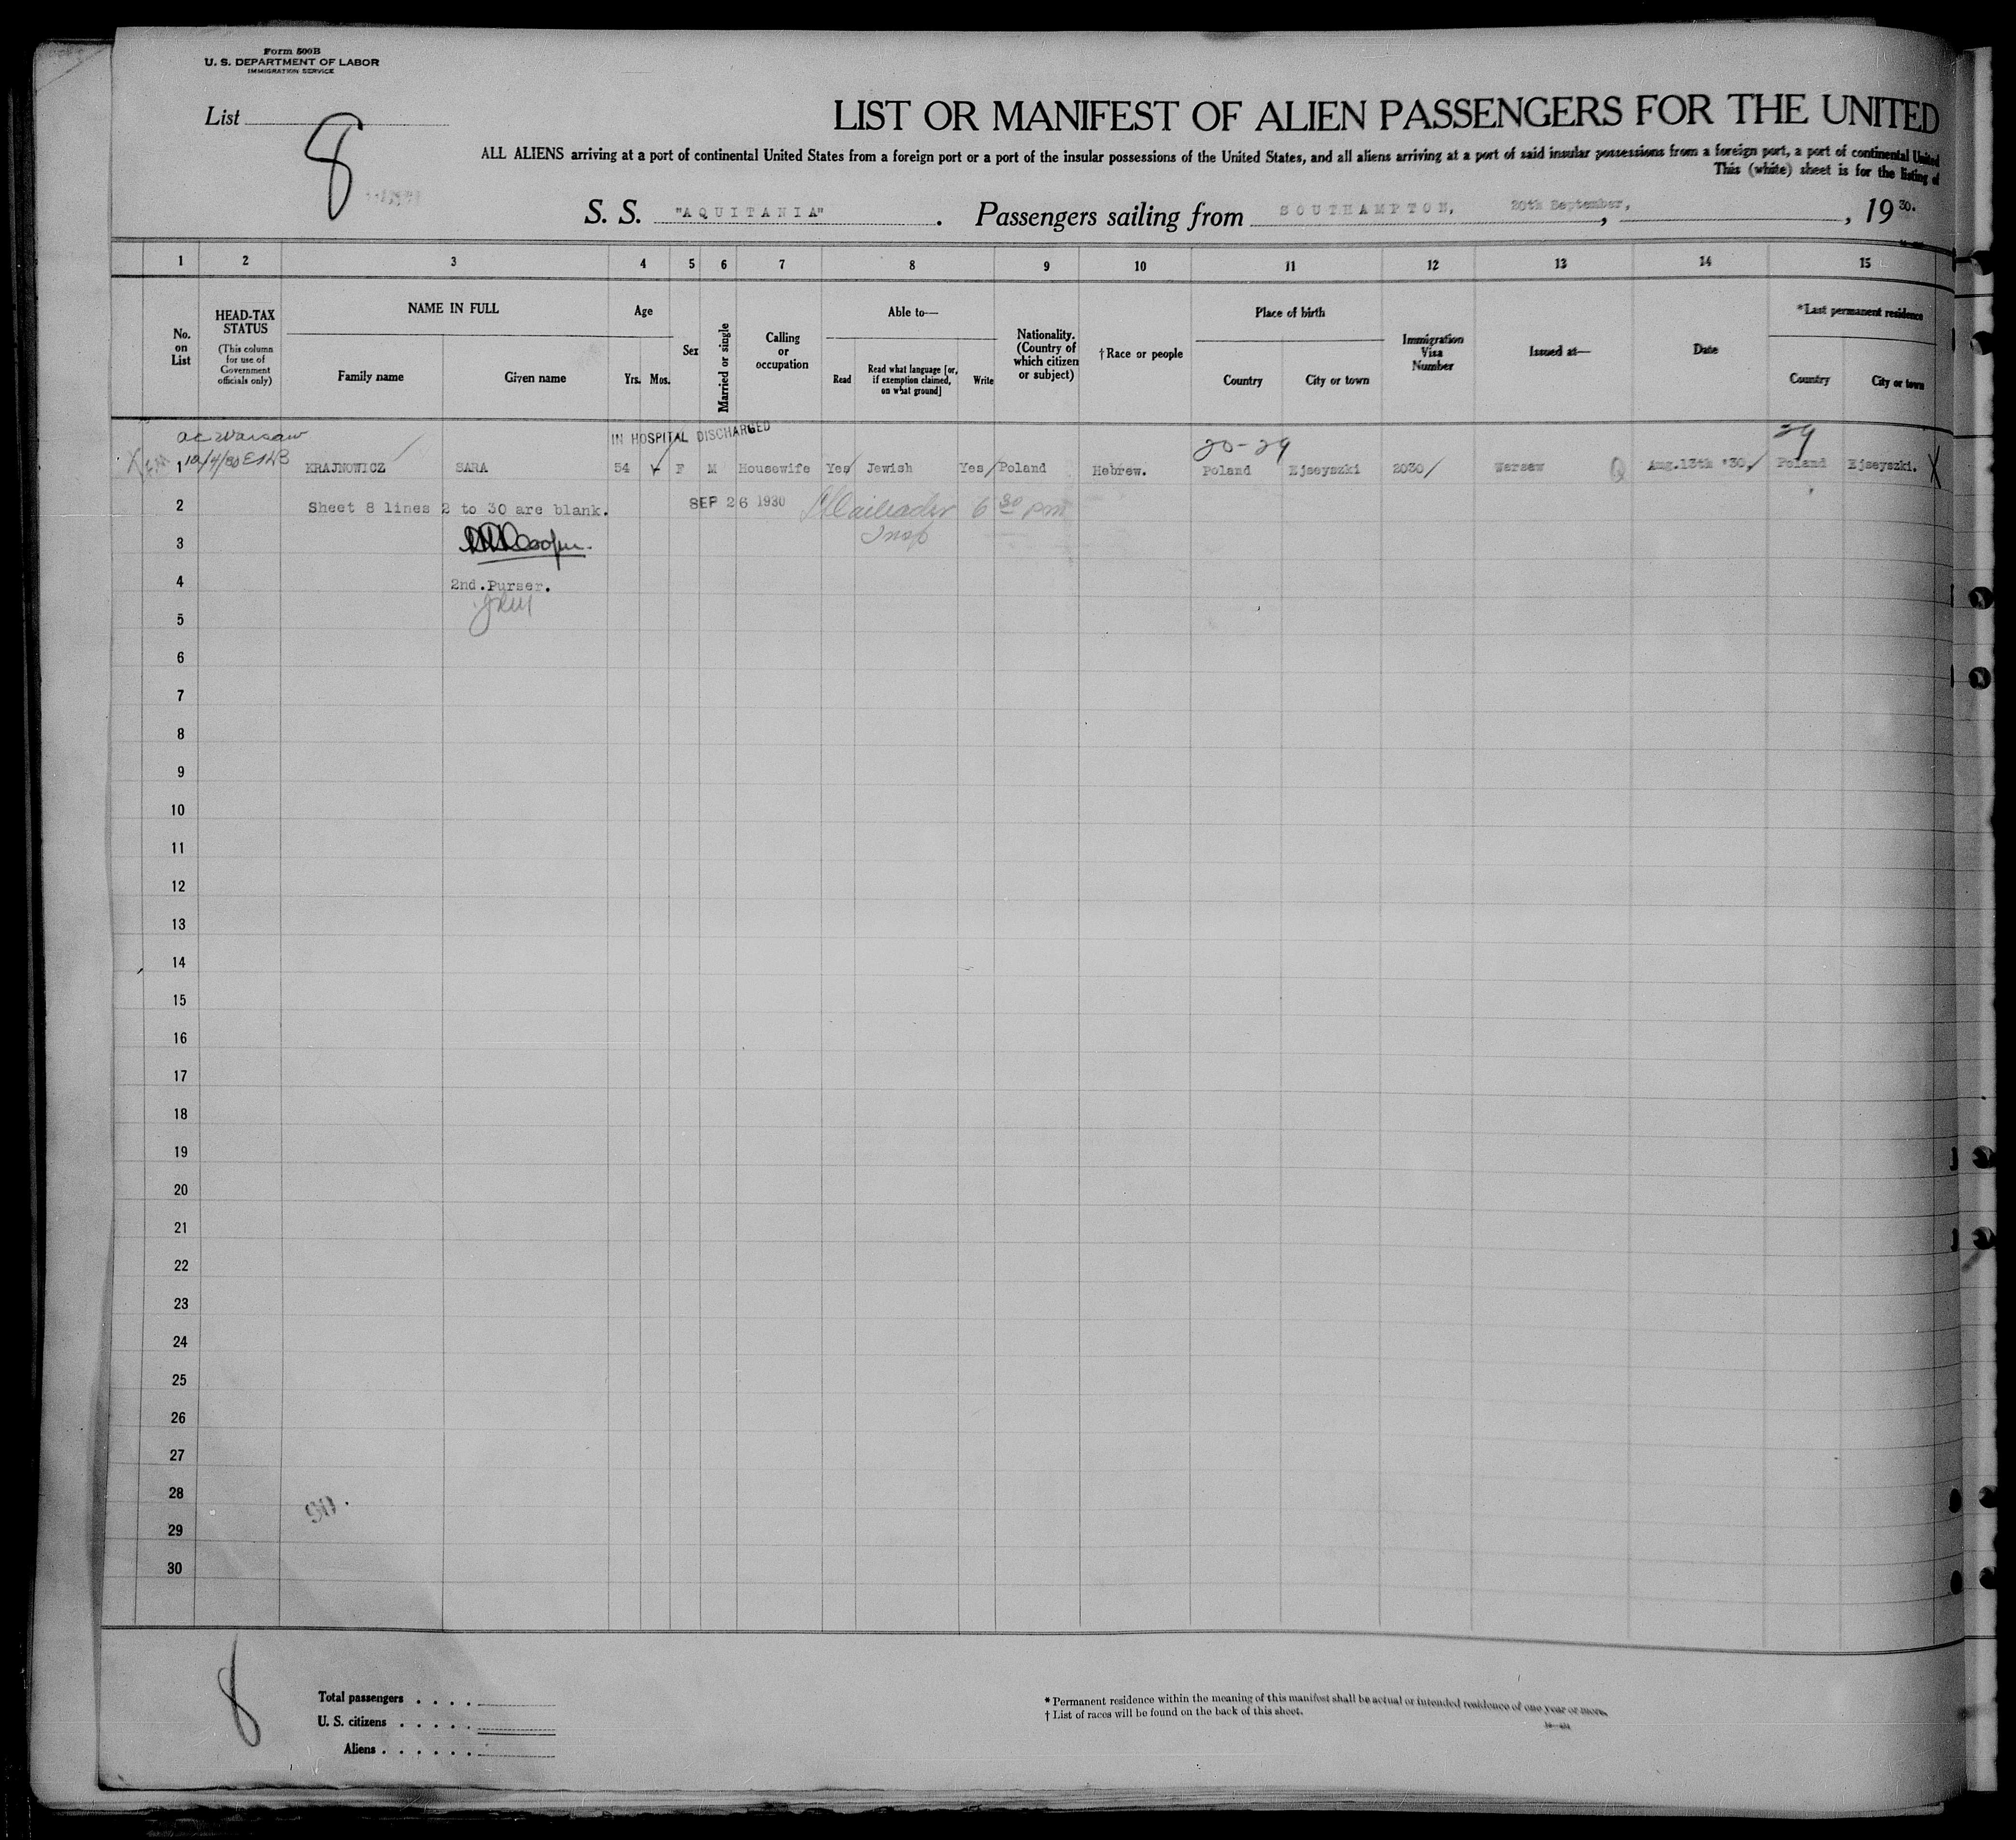 Form 500B
U. S. DEPARTMENT OF LABOR
IMMIGRATION SERVICE
List 8
LIST OR MANIFEST OF ALIEN PASSENGERS FOR THE UNITED
ALL ALIENS arriving at a port of continental United States from a foreign port or a port of the insular possessions of the United States, and all aliens arriving at a port of said insular possessions from a foreign port, a port of continental United
This (white) sheet is for the listing of
S. S. "AQUITANIA". Passengers sailing from SOUTHAMPTON, 20th September, , 19 30.
1 2 3 4 5 6 7 8 9 10 11 12 13 14 15
No. on List
HEAD-TAX STATUS
(This column for use of Government officials only)
NAME IN FULL
Family name
Given name
Age
Yrs. Mos.
Sex
Married or single
Calling or occupation
Able to—
Read
Read what language [or, if exemption claimed, on what ground]
Write
Nationality. (Country of which citizen or subject)
†Race or people
Place of birth
Country
City or town
Immigration Visa Number
Issued at—
Date
*Last permanent residence
Country
City or town
Warsaw
IN HOSPITAL DISCHARGED
20-29
29
1 KRAJNOWICZ SARA 54 F M Housewife Yes Jewish Yes Poland Hebrew. Poland Ejseyszki 2030 Warsaw Aug.13th '30, Poland Ejseyszki.
2 Sheet 8 lines 2 to 30 are blank. SEP 26 1930 6 30 pm
3 Cooper Insp
4 2nd.Purser.
5
6
7
8
9
10
11
12
13
14
15
16
17
18
19
20
21
22
23
24
25
26
27
28
29
30
8
Total passengers . . . .
U. S. citizens . . . . .
Aliens . . . . . .
* Permanent residence within the meaning of this manifest shall be actual or intended residence of one year or more.
† List of races will be found on the back of this sheet.